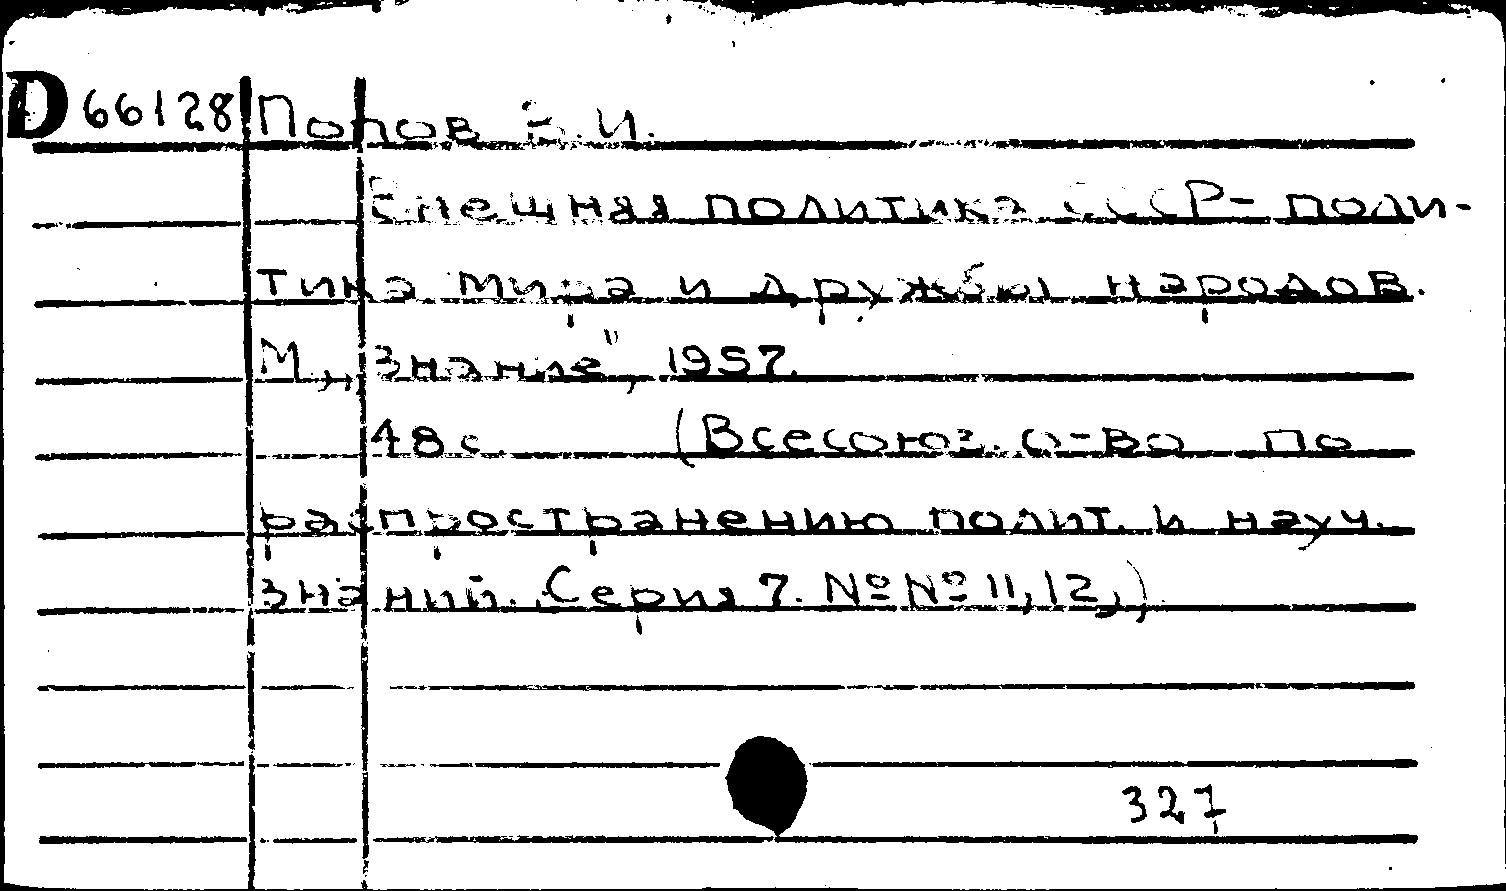 D 66128 Попов В.И.
Внешняя политика СССР- поли-
тика мира и дружбы народов.
М., „Знание", 1957.
48 с. (Всесоюз. о-во по
распространению полит. и науч.
знаний. Серия 7. №№ 11, 12,)
327